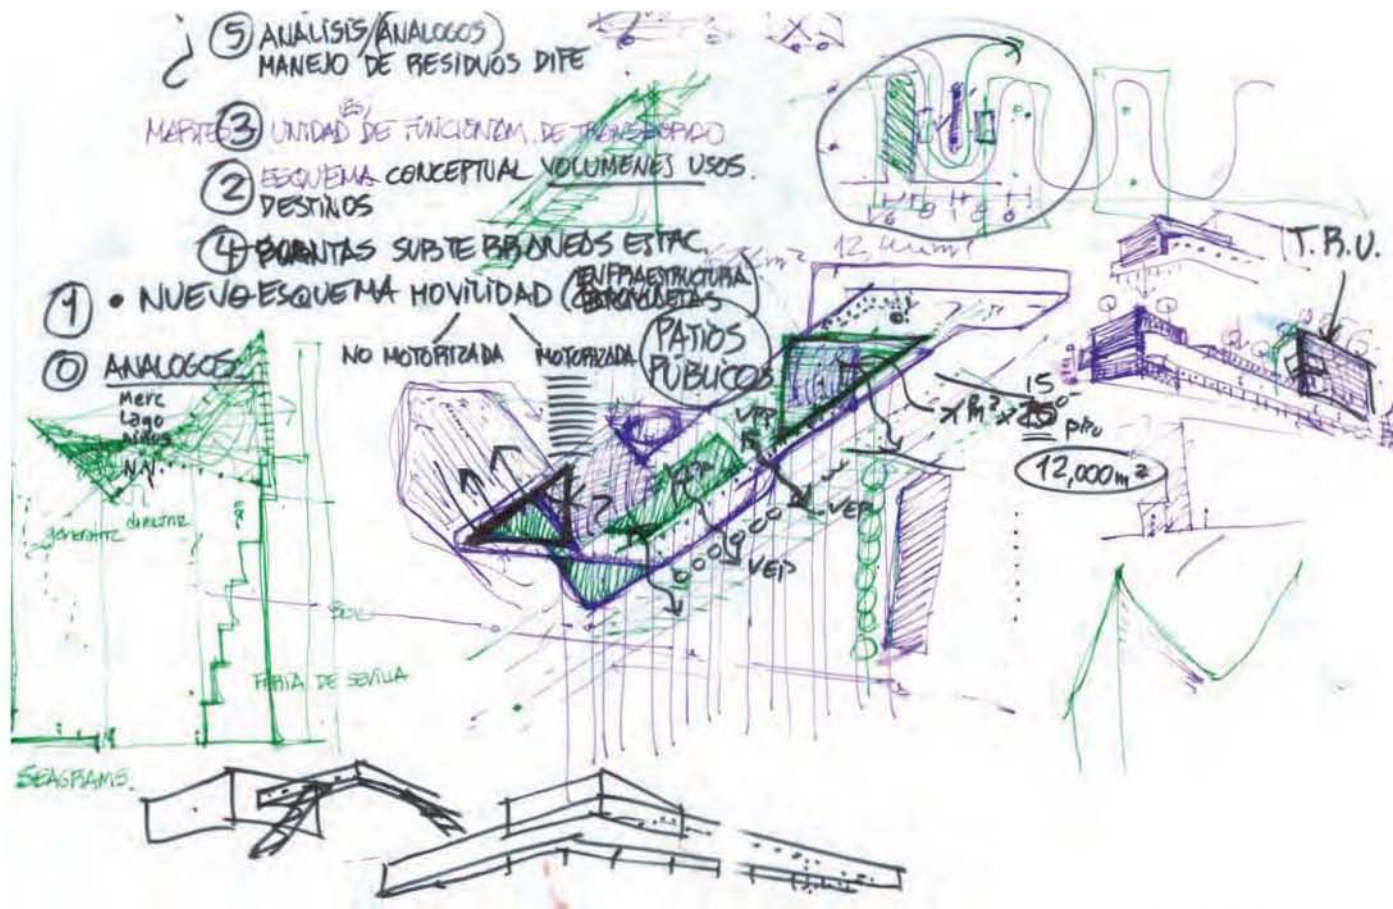 ¿ 5 ANALISIS/ANALOGOS)
MANEJO DE RESIDUOS DIFE
MARTES 3 UNIDAD ES, DE FUNCIONAM. DE TRANSBORDO
2 ESQUEMA CONCEPTUAL VOLUMENES USOS.
DESTINOS
4 SUBTERRANEOS ESTAC.
1 • NUEVO ESQUEMA MOVILIDAD (ENFRAESTRUCTURA
NO MOTORIZADA MOTORIZADA
PATIOS
PÚBLICOS
0 ANALOGOS
Merc
Lago
N.Y.
generatriz directriz
FERIA DE SEVILLA
SEAGRAMS.
VER
VER
VER
T.R.U.
15
12,000 m²